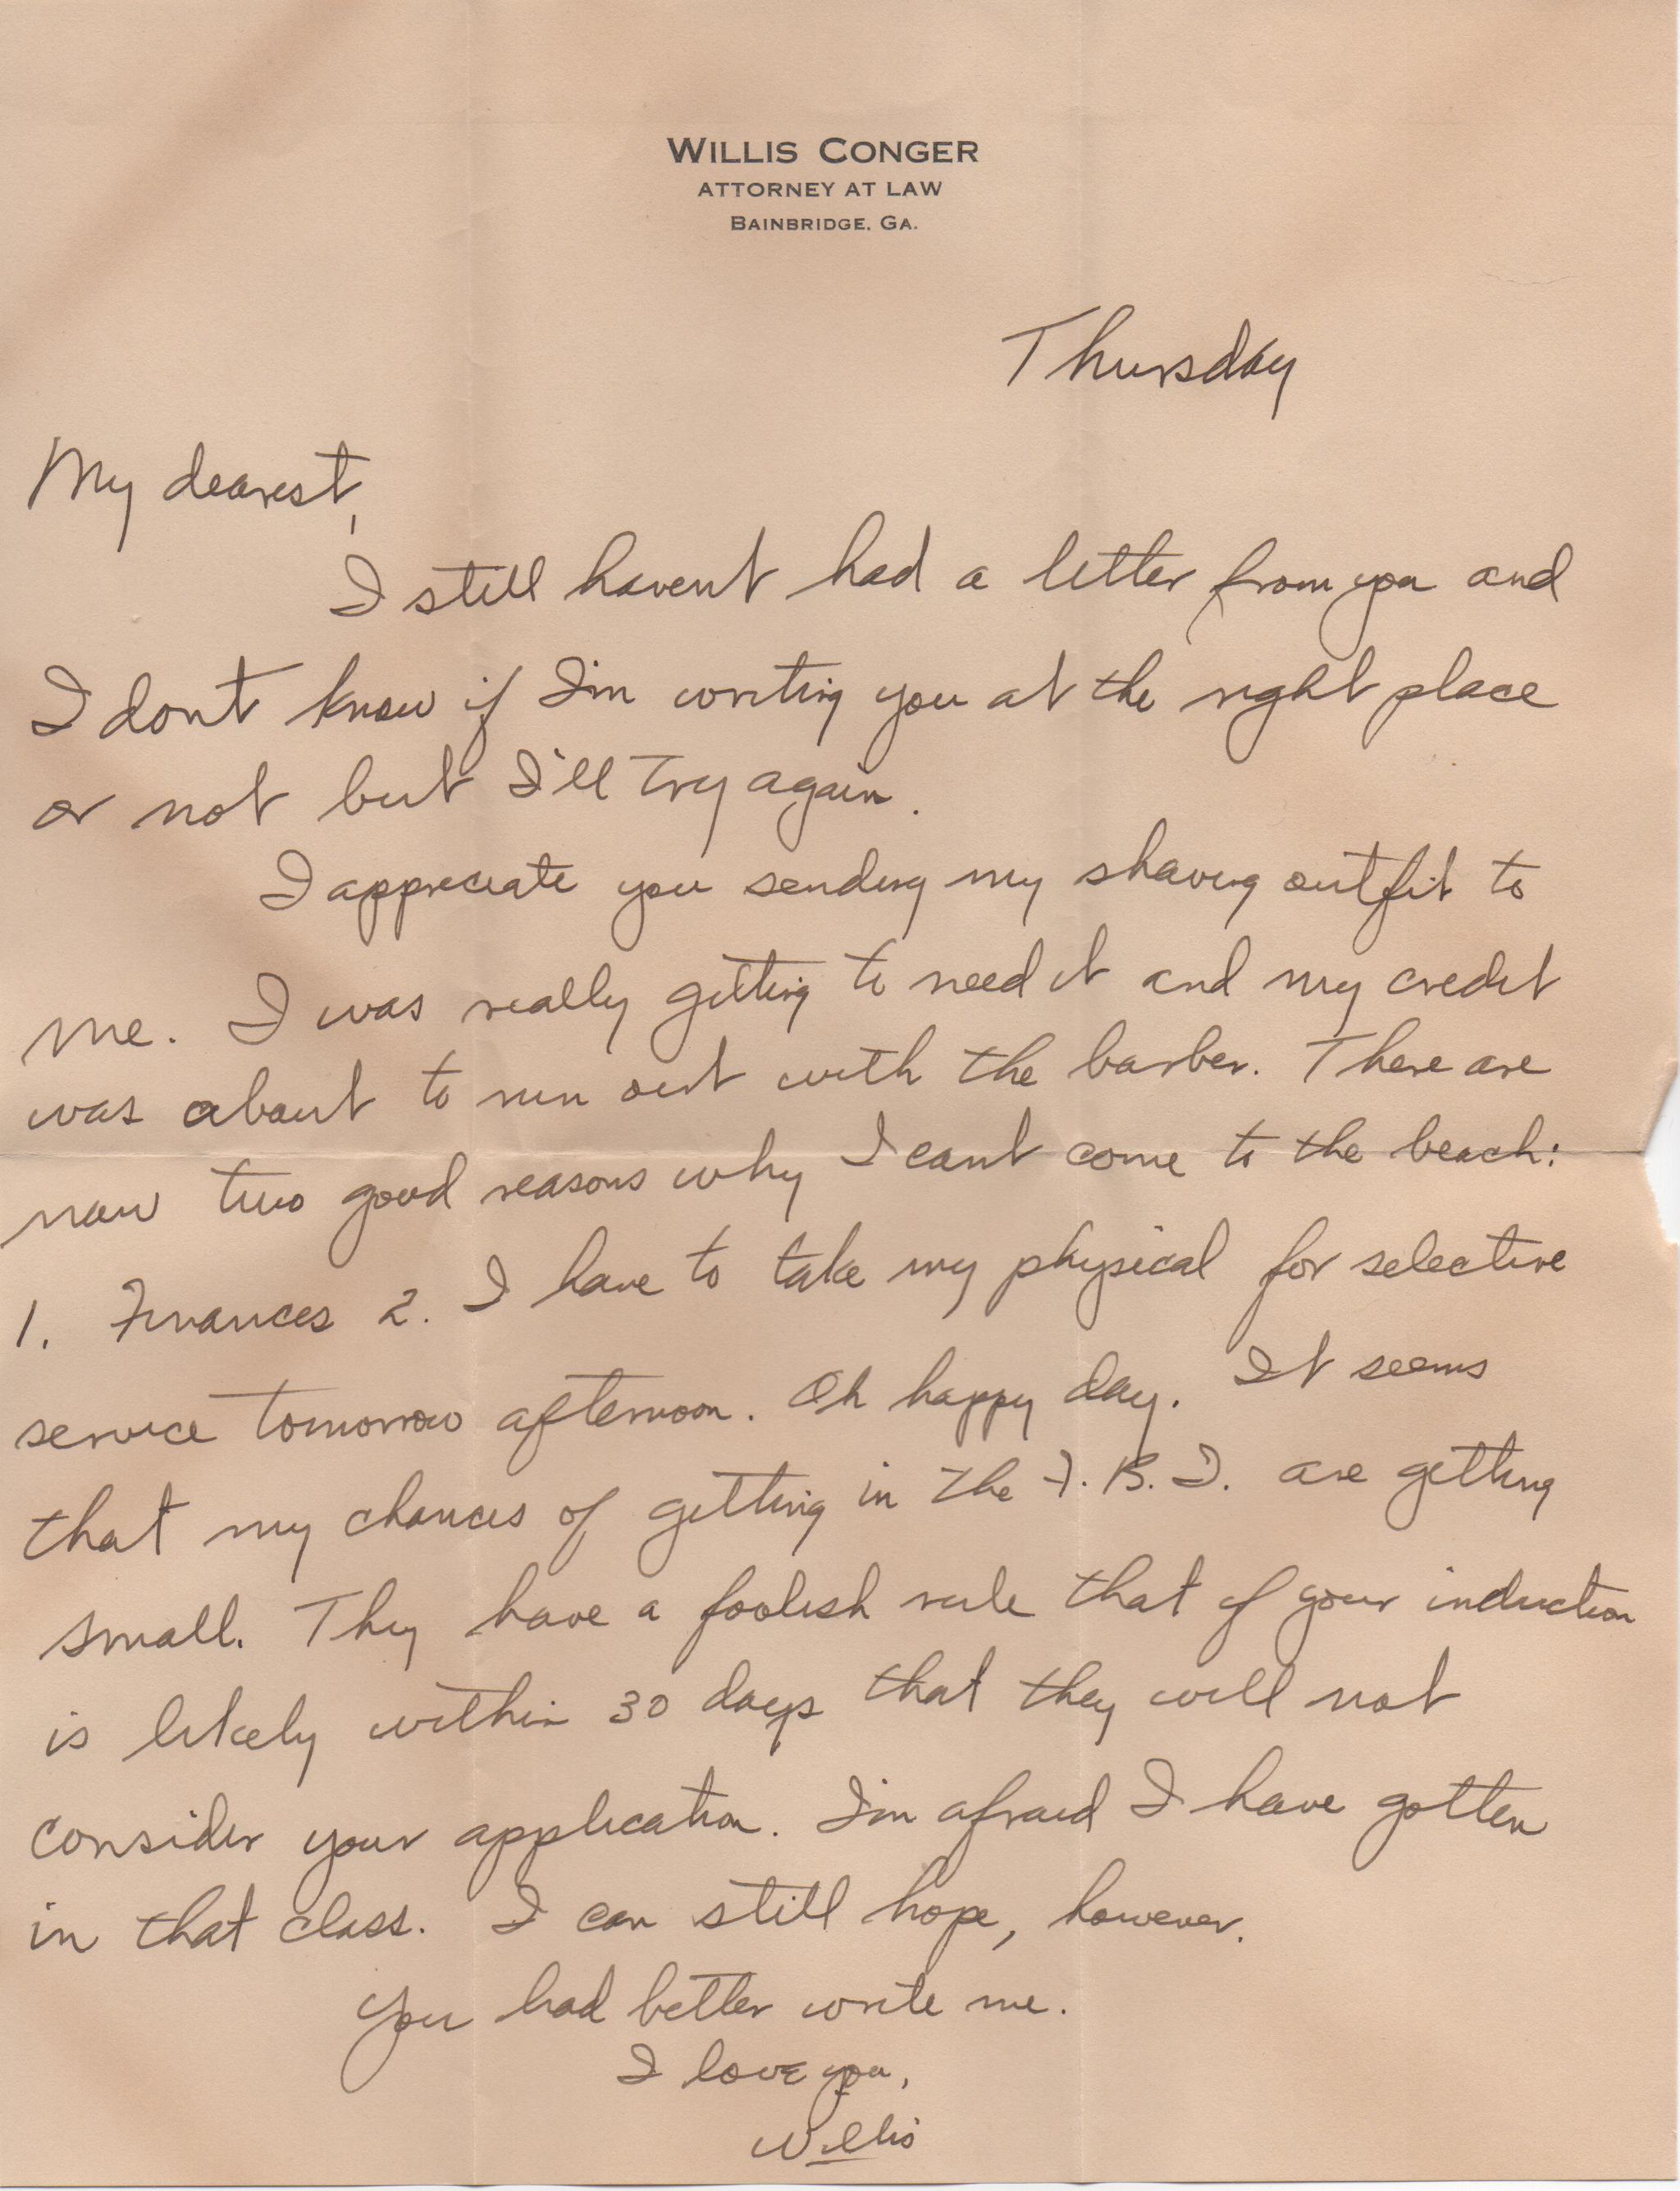 WILLIS CONGER
ATTORNEY AT LAW
BAINBRIDGE, GA.
Thursday
My dearest,
I still havent had a letter from you and
I dont know if I'm writing you at the right place
or not but I'll try again.
I appreciate you sending my shaving outfit to
me. I was really getting to need it and my credit
was about to run out with the barber. There are
now two good reasons why I cant come to the beach:
1. Finances 2. I have to take my physical for selective
service tomorrow afternoon. Oh happy day. It seems
that my chances of getting in the F.B.I. are getting
small. They have a foolish rule that if your induction
is likely within 30 days that they will not
consider your application. I'm afraid I have gotten
in that class. I can still hope, however.
You had better write me.
I love you,
Willis